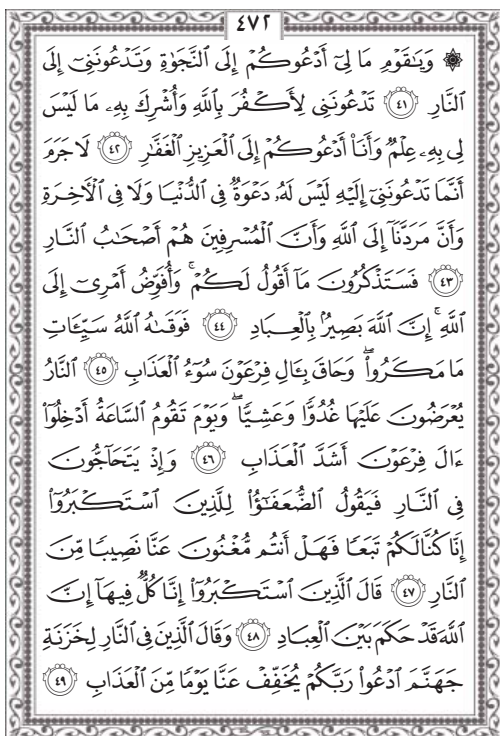 ٤٧٢
۞ وَيَٰقَوْمِ مَا لِىٓ أَدْعُوكُمْ إِلَى ٱلنَّجَوٰةِ وَتَدْعُونَنِىٓ إِلَى
ٱلنَّارِ ٤١ تَدْعُونَنِى لِأَكْفُرَ بِٱللَّهِ وَأُشْرِكَ بِهِۦ مَا لَيْسَ
لِى بِهِۦ عِلْمٌ وَأَنَا۠ أَدْعُوكُمْ إِلَى ٱلْعَزِيزِ ٱلْغَفَّٰرِ ٤٢ لَا جَرَمَ
أَنَّمَا تَدْعُونَنِىٓ إِلَيْهِ لَيْسَ لَهُۥ دَعْوَةٌ فِى ٱلدُّنْيَا وَلَا فِى ٱلْأَخِرَةِ
وَأَنَّ مَرَدَّنَآ إِلَى ٱللَّهِ وَأَنَّ ٱلْمُسْرِفِينَ هُمْ أَصْحَٰبُ ٱلنَّارِ
٤٣ فَسَتَذْكُرُونَ مَآ أَقُولُ لَكُمْ ۚ وَأُفَوِّضُ أَمْرِىٓ إِلَى
ٱللَّهِ ۚ إِنَّ ٱللَّهَ بَصِيرٌۢ بِٱلْعِبَادِ ٤٤ فَوَقَىٰهُ ٱللَّهُ سَيِّـَٔاتِ
مَا مَكَرُوا۟ ۖ وَحَاقَ بِـَٔالِ فِرْعَوْنَ سُوٓءُ ٱلْعَذَابِ ٤٥ ٱلنَّارُ
يُعْرَضُونَ عَلَيْهَا غُدُوًّا وَعَشِيًّا ۖ وَيَوْمَ تَقُومُ ٱلسَّاعَةُ أَدْخِلُوٓا۟
ءَالَ فِرْعَوْنَ أَشَدَّ ٱلْعَذَابِ ٤٦ وَإِذْ يَتَحَآجُّونَ
فِى ٱلنَّارِ فَيَقُولُ ٱلضُّعَفَٰٓؤُا۟ لِلَّذِينَ ٱسْتَكْبَرُوٓا۟
إِنَّا كُنَّا لَكُمْ تَبَعًا فَهَلْ أَنتُم مُّغْنُونَ عَنَّا نَصِيبًا مِّنَ
ٱلنَّارِ ٤٧ قَالَ ٱلَّذِينَ ٱسْتَكْبَرُوٓا۟ إِنَّا كُلٌّ فِيهَآ إِنَّ
ٱللَّهَ قَدْ حَكَمَ بَيْنَ ٱلْعِبَادِ ٤٨ وَقَالَ ٱلَّذِينَ فِى ٱلنَّارِ لِخَزَنَةِ
جَهَنَّمَ ٱدْعُوا۟ رَبَّكُمْ يُخَفِّفْ عَنَّا يَوْمًا مِّنَ ٱلْعَذَابِ ٤٩